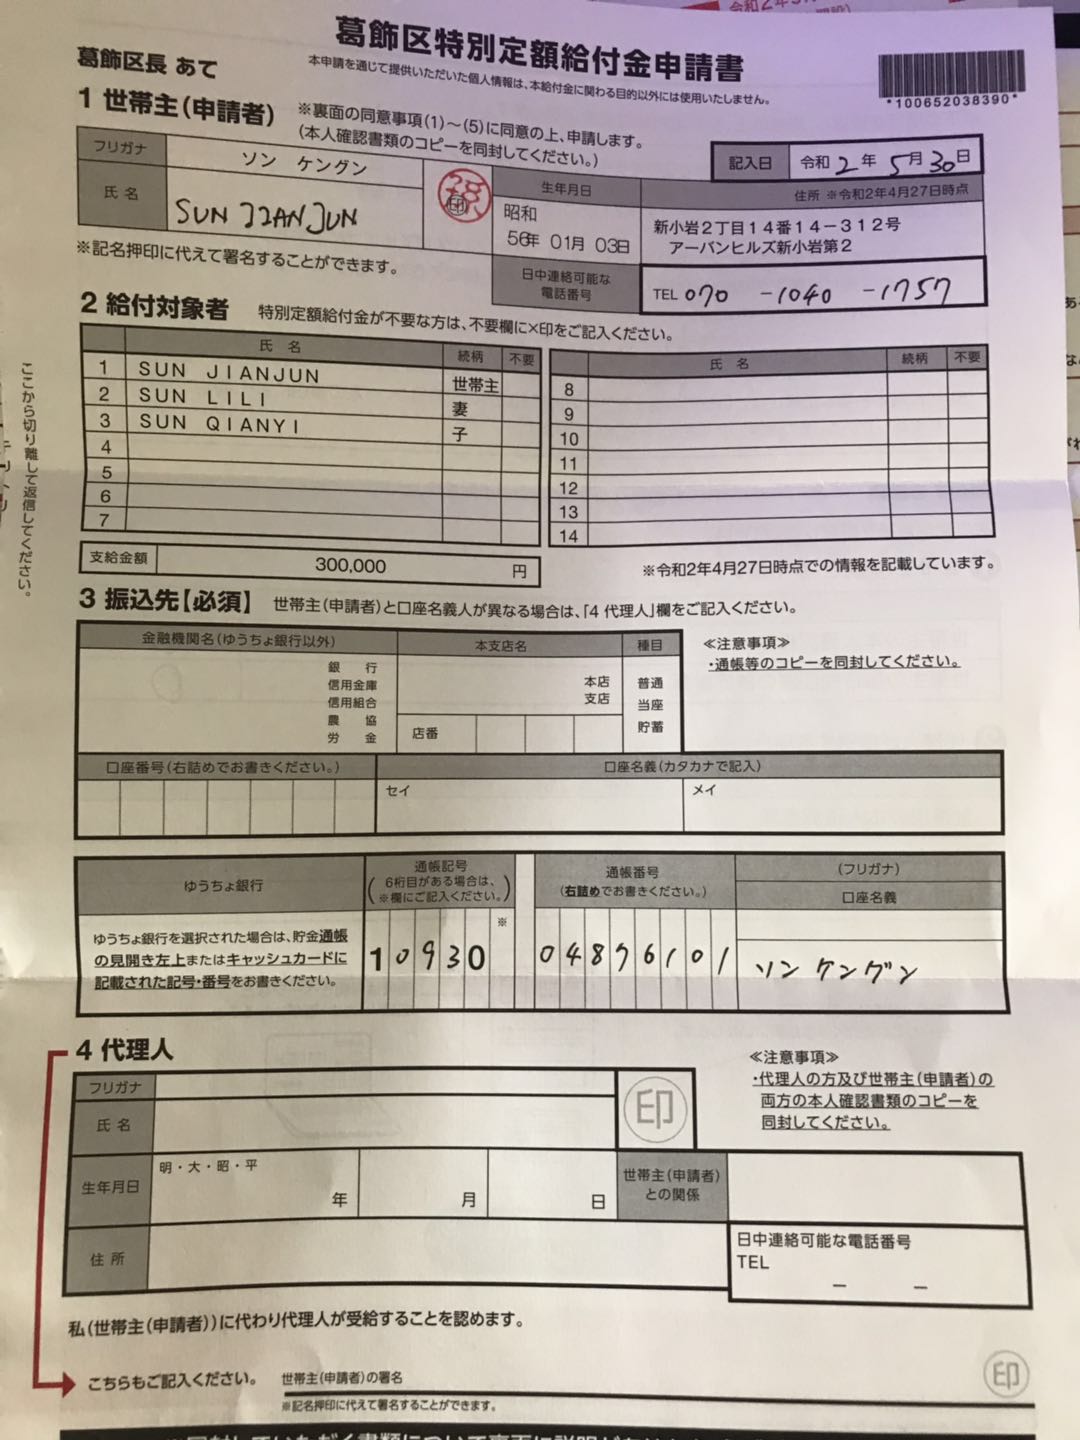 葛飾区特別定額給付金申請書
葛飾区長 あて
本申請を通じて提供いただいた個人情報は、本給付金に関わる目的以外には使用いたしません。
*100652038390*
1 世帯主(申請者)
※裏面の同意事項(1)~(5)に同意の上、申請します。
(本人確認書類のコピーを同封してください。)
記入日 令和 2 年 5 月 30 日
フリガナ ソン ケングン
氏 名 SUN JIANJUN
印
生年月日
昭和
56年 01月 03日
住所 ※令和2年4月27日時点
新小岩2丁目14番14-312号
アーバンヒルズ新小岩第2
※記名押印に代えて署名することができます。
日中連絡可能な
電話番号
TEL 070 -1040 -1757
2 給付対象者
特別定額給付金が不要な方は、不要欄に×印をご記入ください。
氏 名 続柄 不要 氏 名 続柄 不要
1 SUN JIANJUN 世帯主 8
2 SUN LILI 妻 9
3 SUN QIANYI 子 10
4 11
5 12
6 13
7 14
支給金額 300,000 円
※令和2年4月27日時点での情報を記載しています。
ここから切り離して返信してください。
3 振込先【必須】
世帯主(申請者)と口座名義人が異なる場合は、「4 代理人」欄をご記入ください。
金融機関名(ゆうちょ銀行以外) 本支店名 種目
銀 行
信用金庫
信用組合
農 協
労 金
本店
支店
店番
普通
当座
貯蓄
≪注意事項≫
・通帳等のコピーを同封してください。
口座番号(右詰めでお書きください。) 口座名義(カタカナで記入)
セイ メイ
ゆうちょ銀行
通帳記号
(6桁目がある場合は、
※欄にご記入ください。)
通帳番号
(右詰めでお書きください。)
(フリガナ)
口座名義
ゆうちょ銀行を選択された場合は、貯金通帳
の見開き左上またはキャッシュカードに
記載された記号・番号をお書きください。
※
10930
04876101
ソン ケングン
4 代理人
≪注意事項≫
・代理人の方及び世帯主(申請者)の
両方の本人確認書類のコピーを
同封してください。
フリガナ
氏 名
印
生年月日 明・大・昭・平
年 月 日
世帯主(申請者)
との関係
住 所
日中連絡可能な電話番号
TEL
－ －
私(世帯主(申請者))に代わり代理人が受給することを認めます。
こちらもご記入ください。
世帯主(申請者)の署名
印
※記名押印に代えて署名することができます。